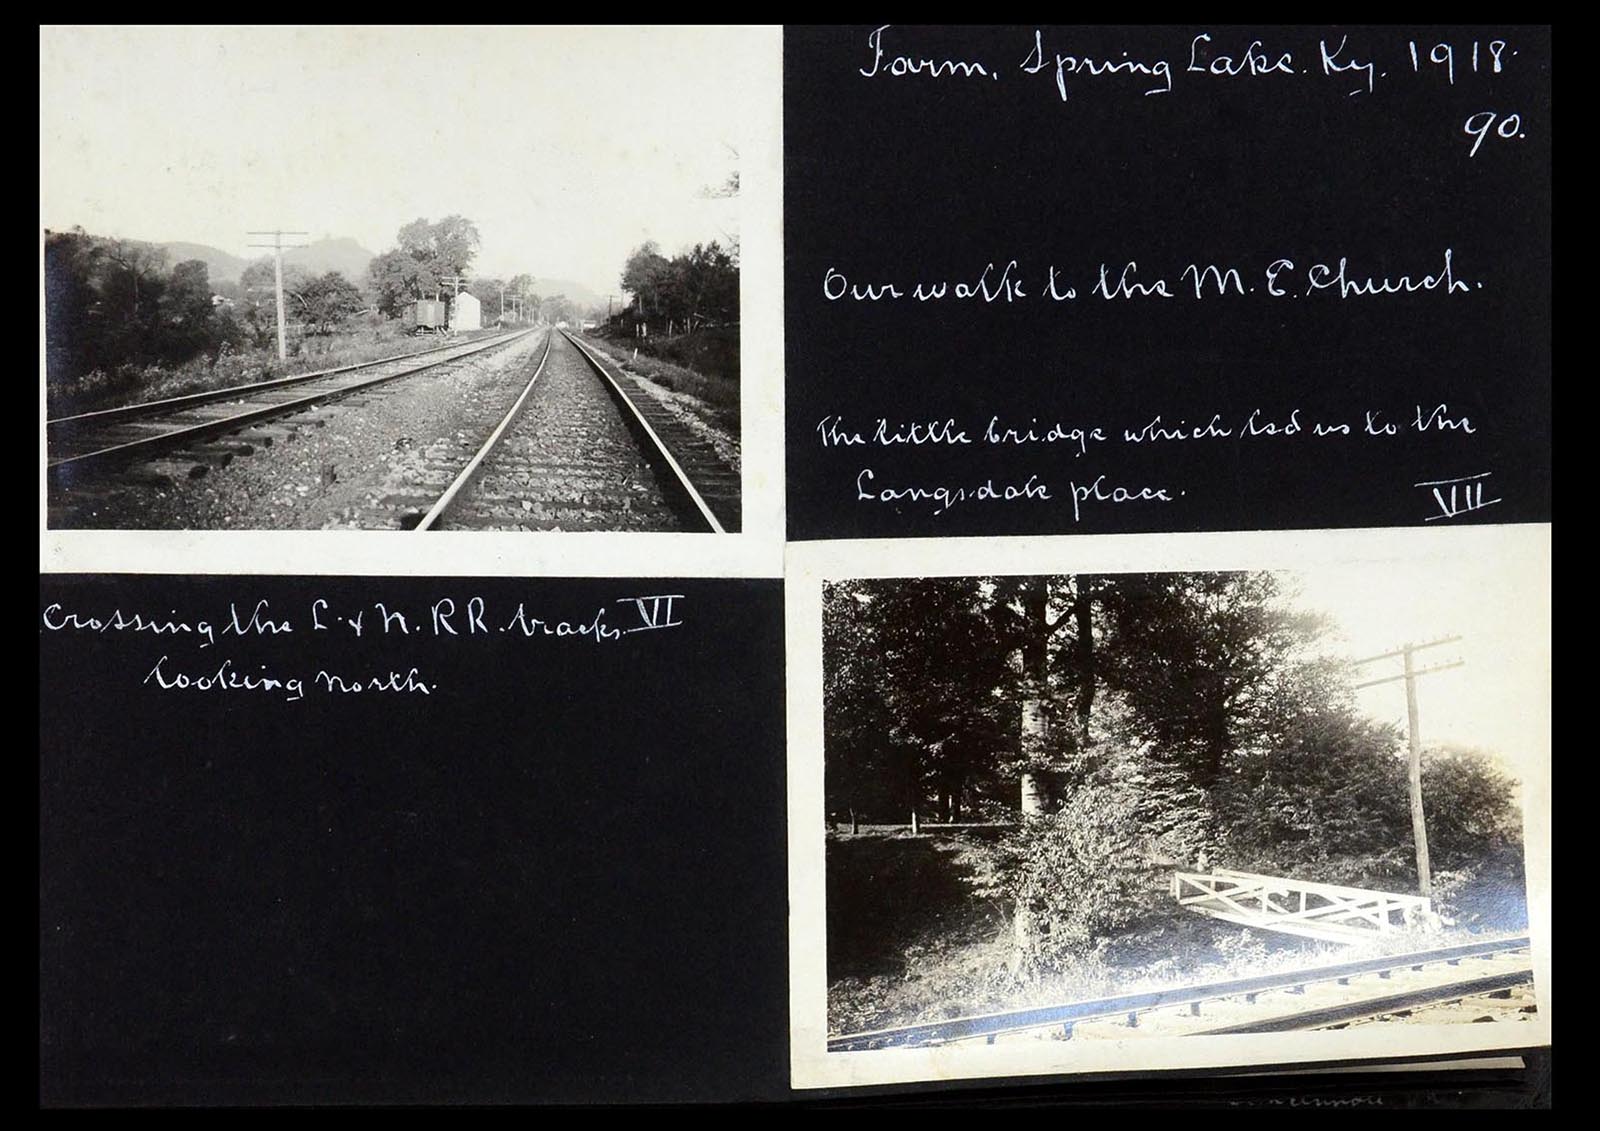 Farm, Spring Lake. Ky. 1918.
90.
Our walk to the M. E. Church.
The little bridge which led us to the
Langsdale place.
VII
Crossing the L. & N. R R. tracks. VI
looking north.